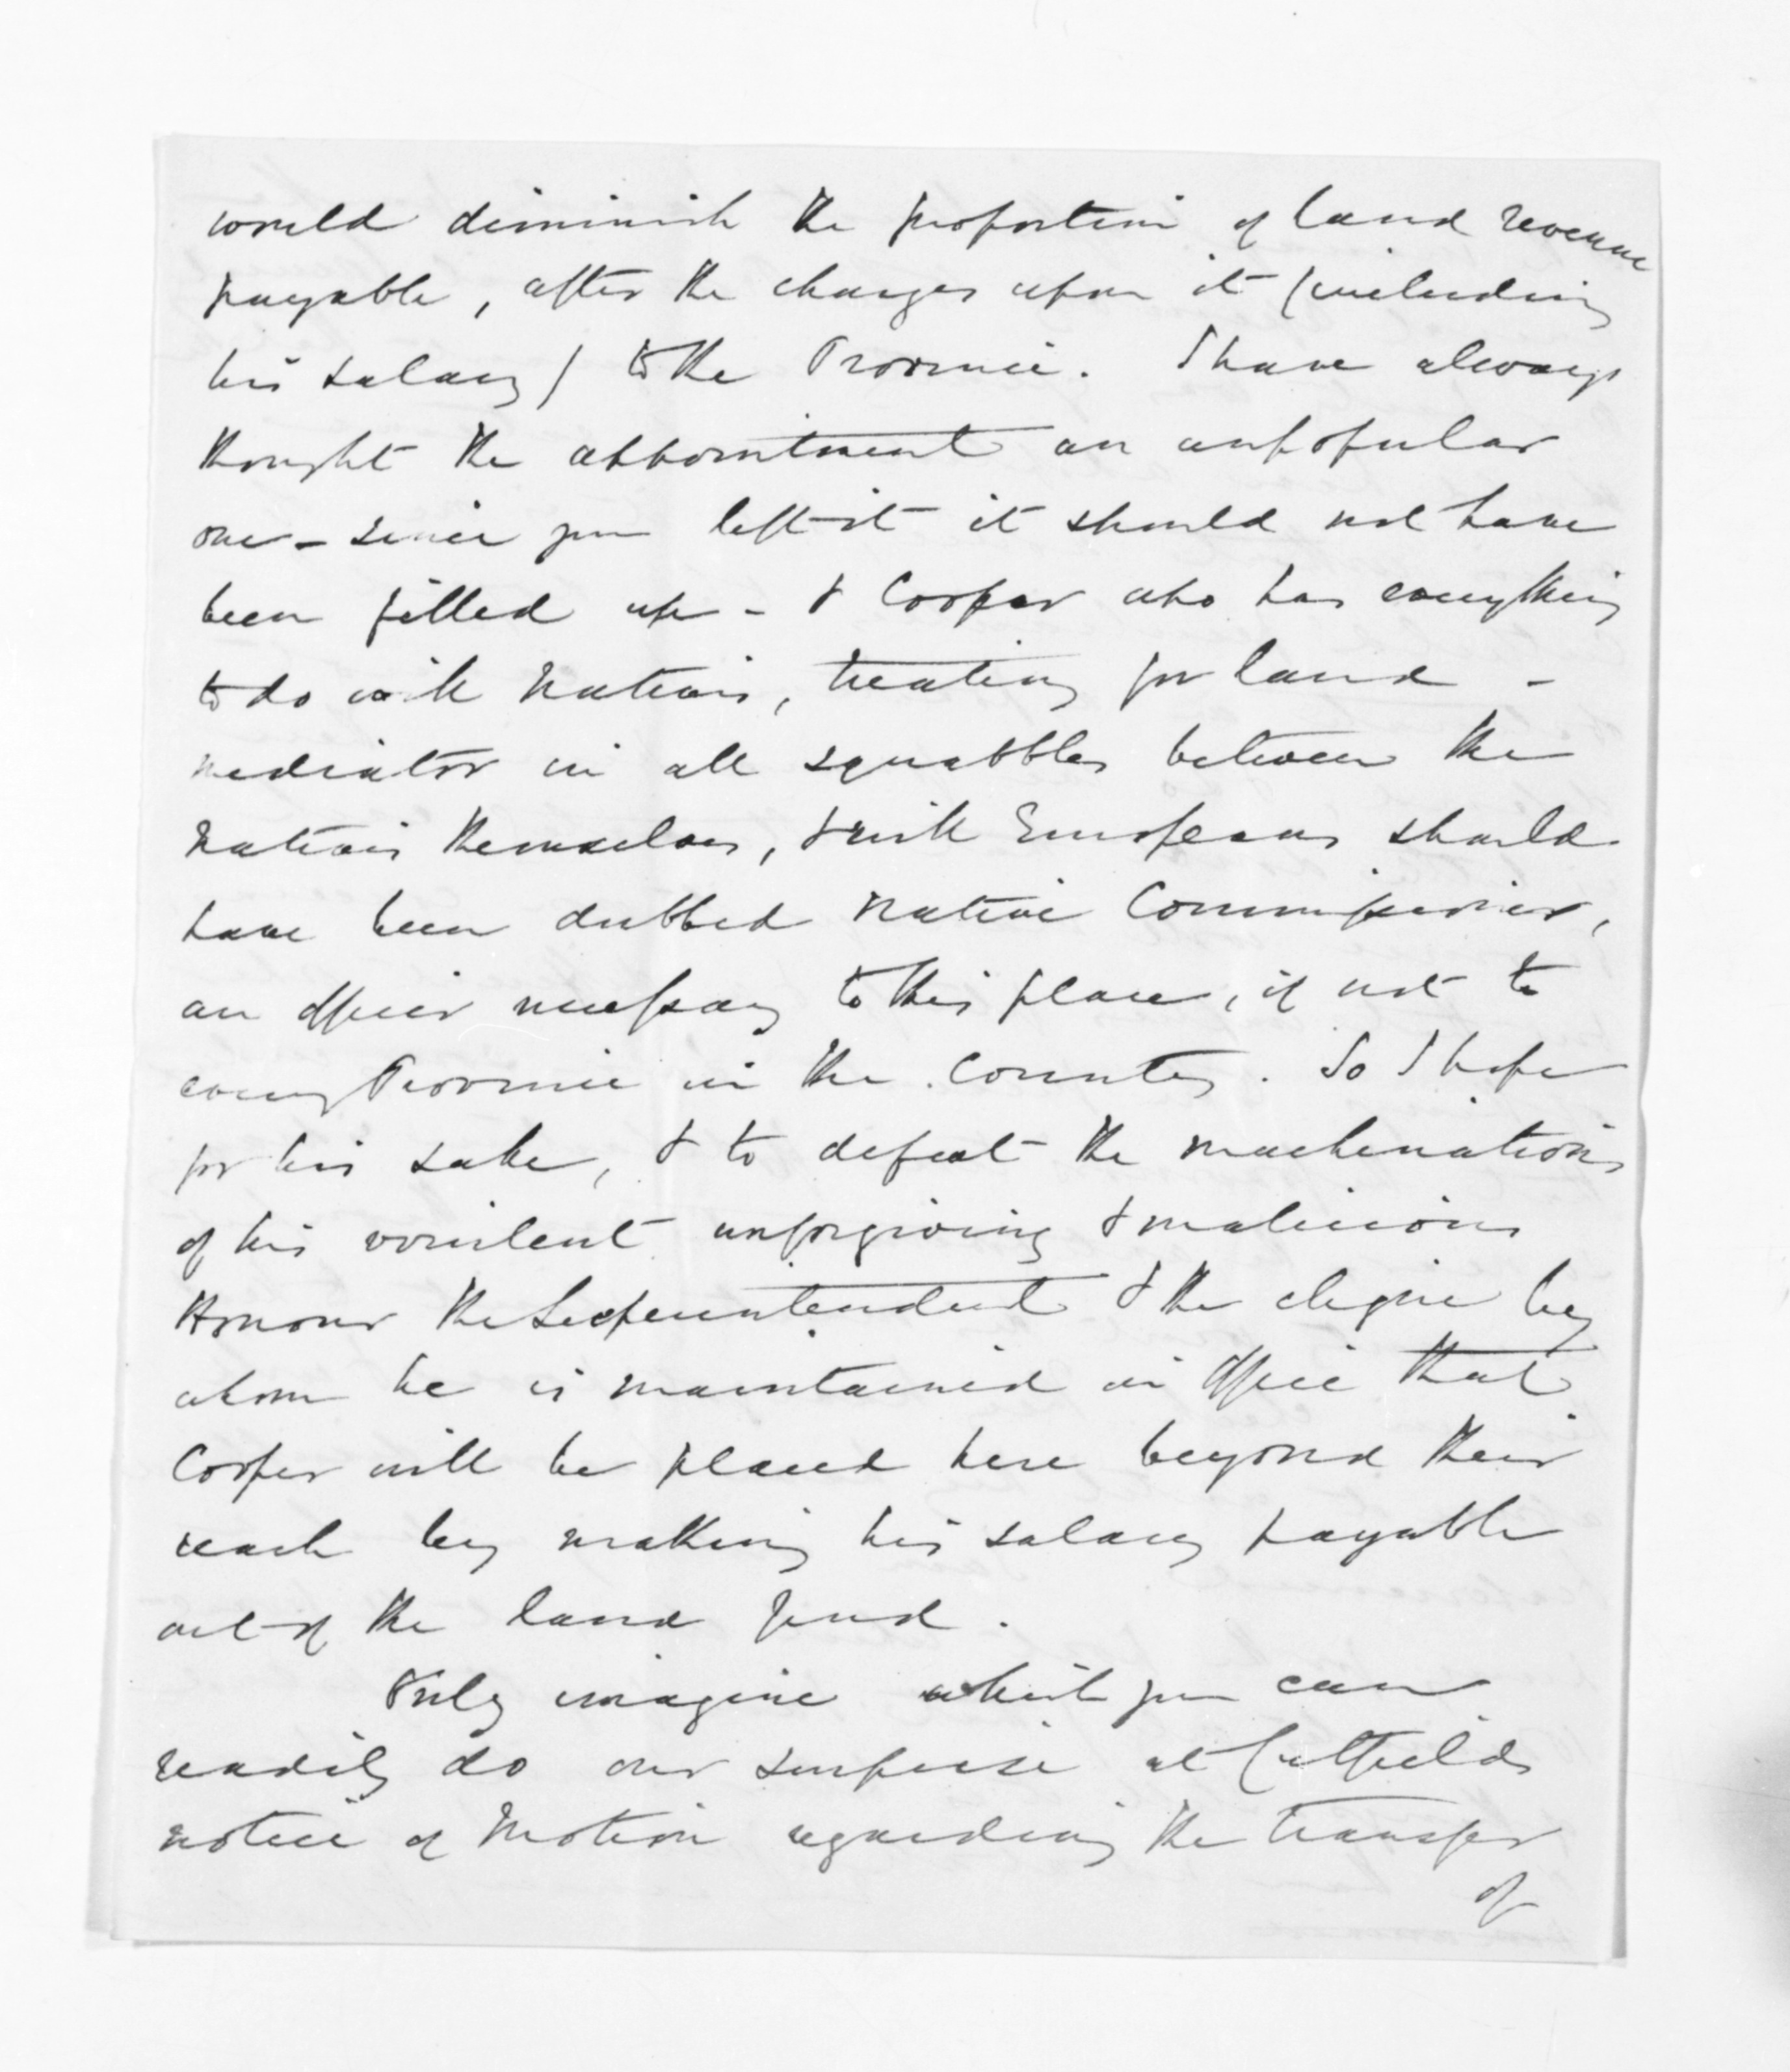 would diminish the proportion of land revenue
payable, after the charges upon it (including
his salary) to the Province. I have always
thought the appointment an unpopular
one - since you left it it should not have
been filled up - & Cooper who has everything
to do with Natives, treating for land -
mediator in all squabbles between the
Natives themselves, & with Europeans should
have been dubbed Native Commissioner,
an officer necessary to this place, if not to
every Province in the Country. So I hope
for his sake, & to defeat the machinations
of his virulent unforgiving & malicious
Honour the Superintendent & the clique by
whom he is maintained in office that
Cooper will be placed here beyond their
reach by making his salary payable
out of the land fund.
Only imagine which you can
readily do our surprise at Cutfields
notice of Motion regarding the transfer
of